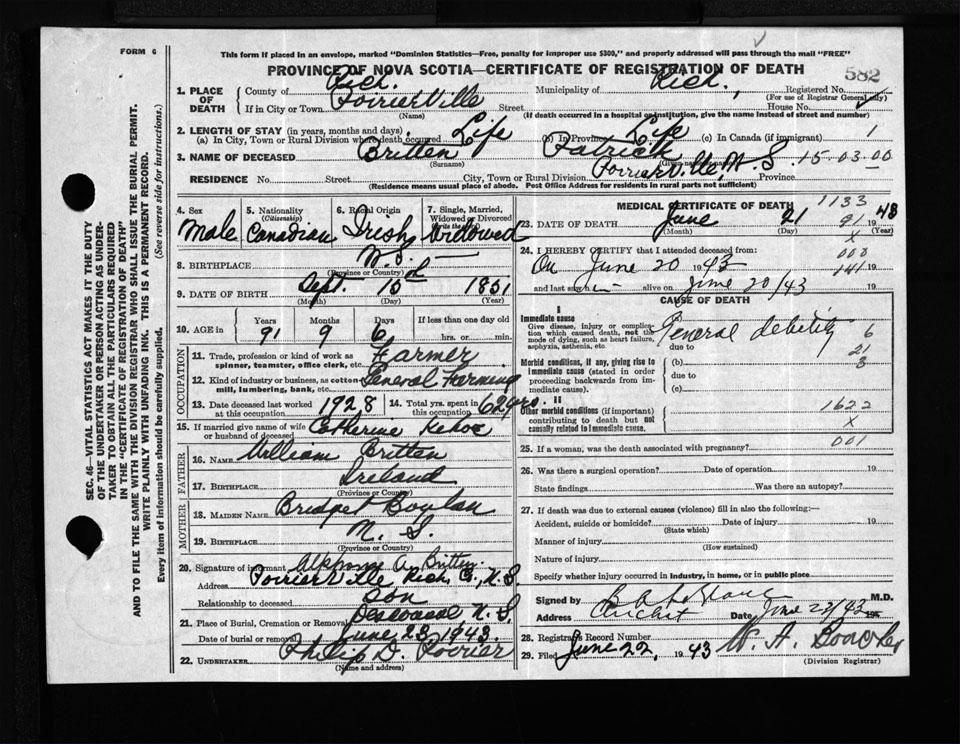 FORM 6
This form if placed in an envelope, marked "Dominion Statistics—Free, penalty for improper use $300," and properly addressed will pass through the mail "FREE"
PROVINCE OF NOVA SCOTIA—CERTIFICATE OF REGISTRATION OF DEATH
582
1. PLACE OF DEATH
County of Rich. Municipality of Rich. Registered No.
(For use of Registrar General only)
If in City or Town Poirierville Street House No.
(Name) (If death occurred in a hospital or institution, give the name instead of street and number)
2. LENGTH OF STAY (in years, months and days)
(a) In City, Town or Rural Division where death occurred Life (b) In Province Life (c) In Canada (if immigrant) 1
3. NAME OF DECEASED Britten Patrick
(Surname)
15.03.00
RESIDENCE No. Street City, Town or Rural Division Poirierville, N.S. Province
(Residence means usual place of abode. Post Office Address for residents in rural parts not sufficient)
4. Sex Male
5. Nationality (Citizenship) Canadian
6. Racial Origin Irish
7. Single, Married, Widowed or Divorced (Write the word) Widowed
8. BIRTHPLACE N.S.
(Province or Country)
9. DATE OF BIRTH Sept. 15 1851
(Month) (Day) (Year)
10. AGE in Years Months Days If less than one day old
91 9 6 hrs. or min.
OCCUPATION
11. Trade, profession or kind of work as spinner, teamster, office clerk, etc. Farmer
12. Kind of industry or business, as cotton mill, lumbering, bank, etc. General Farming
13. Date deceased last worked at this occupation 1928
14. Total yrs. spent in this occupation 62 yrs.
15. If married give name of wife or husband of deceased Catherine Kehoe
FATHER
16. NAME William Britten
17. BIRTHPLACE Ireland
(Province or Country)
MOTHER
18. MAIDEN NAME Bridget
19. BIRTHPLACE N. S.
(Province or Country)
20. Signature of informant Alphonse A. Britten
Address Poirierville Rich. Co., N.S.
Relationship to deceased Son
21. Place of Burial, Cremation or Removal Descousse N.S.
Date of burial or removal June 23, 1943.
22. UNDERTAKER Philip D. Poirier
MEDICAL CERTIFICATE OF DEATH 1133
23. DATE OF DEATH June 21 91 1943
(Month) (Day) (Year)
X
24. I HEREBY CERTIFY that I attended deceased from:
000
On June 20 1943 141 19
and last saw h alive on June 20/43 19
CAUSE OF DEATH
I
Immediate cause
Give disease, injury or complication which caused death, not the mode of dying, such as heart failure, asphyxia, asthenia, etc.
General debility 6
due to 21
Morbid conditions, if any, giving rise to immediate cause (stated in order proceeding backwards from immediate cause).
(b) 3
due to
(c)
II
Other morbid conditions (if important) contributing to death but not causally related to immediate cause.
1622
X
25. If a woman, was the death associated with pregnancy? 001
26. Was there a surgical operation? Date of operation 19
State findings Was there an autopsy?
27. If death was due to external causes (violence) fill in also the following:—
Accident, suicide or homicide? Date of injury 19
(State which)
Manner of injury
(How sustained)
Nature of injury
Specify whether injury occurred in industry, in home, or in public place
Signed by M.D.
Address Arichat Date June 22/43 194
28. Registrar's Record Number
29. Filed June 22, 1943 W. A.
(Division Registrar)
SEC. 46—VITAL STATISTICS ACT MAKES IT THE DUTY OF THE UNDERTAKER OR PERSON ACTING AS UNDERTAKER TO OBTAIN ALL THE PARTICULARS REQUIRED IN THE "CERTIFICATE OF REGISTRATION OF DEATH" AND TO FILE THE SAME WITH THE DIVISION REGISTRAR WHO SHALL ISSUE THE BURIAL PERMIT.
WRITE PLAINLY WITH UNFADING INK. THIS IS A PERMANENT RECORD.
Every item of information should be carefully supplied. (See reverse side for instructions.)